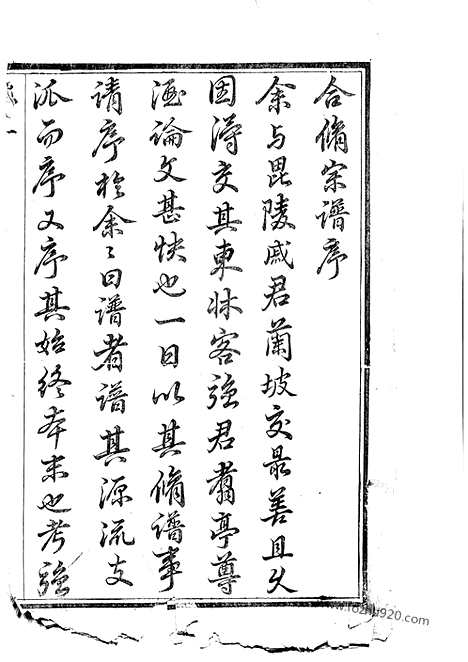 合脩宗譜序
余与毘陵戚君蘭坡交最善且久
因淂交其東牀客強君翥亭尊
酒論文甚快也一日以其脩譜事
請序於余〻曰譜者譜其源流支
派而序又序其始終本末也考強
www.fozhu920.com